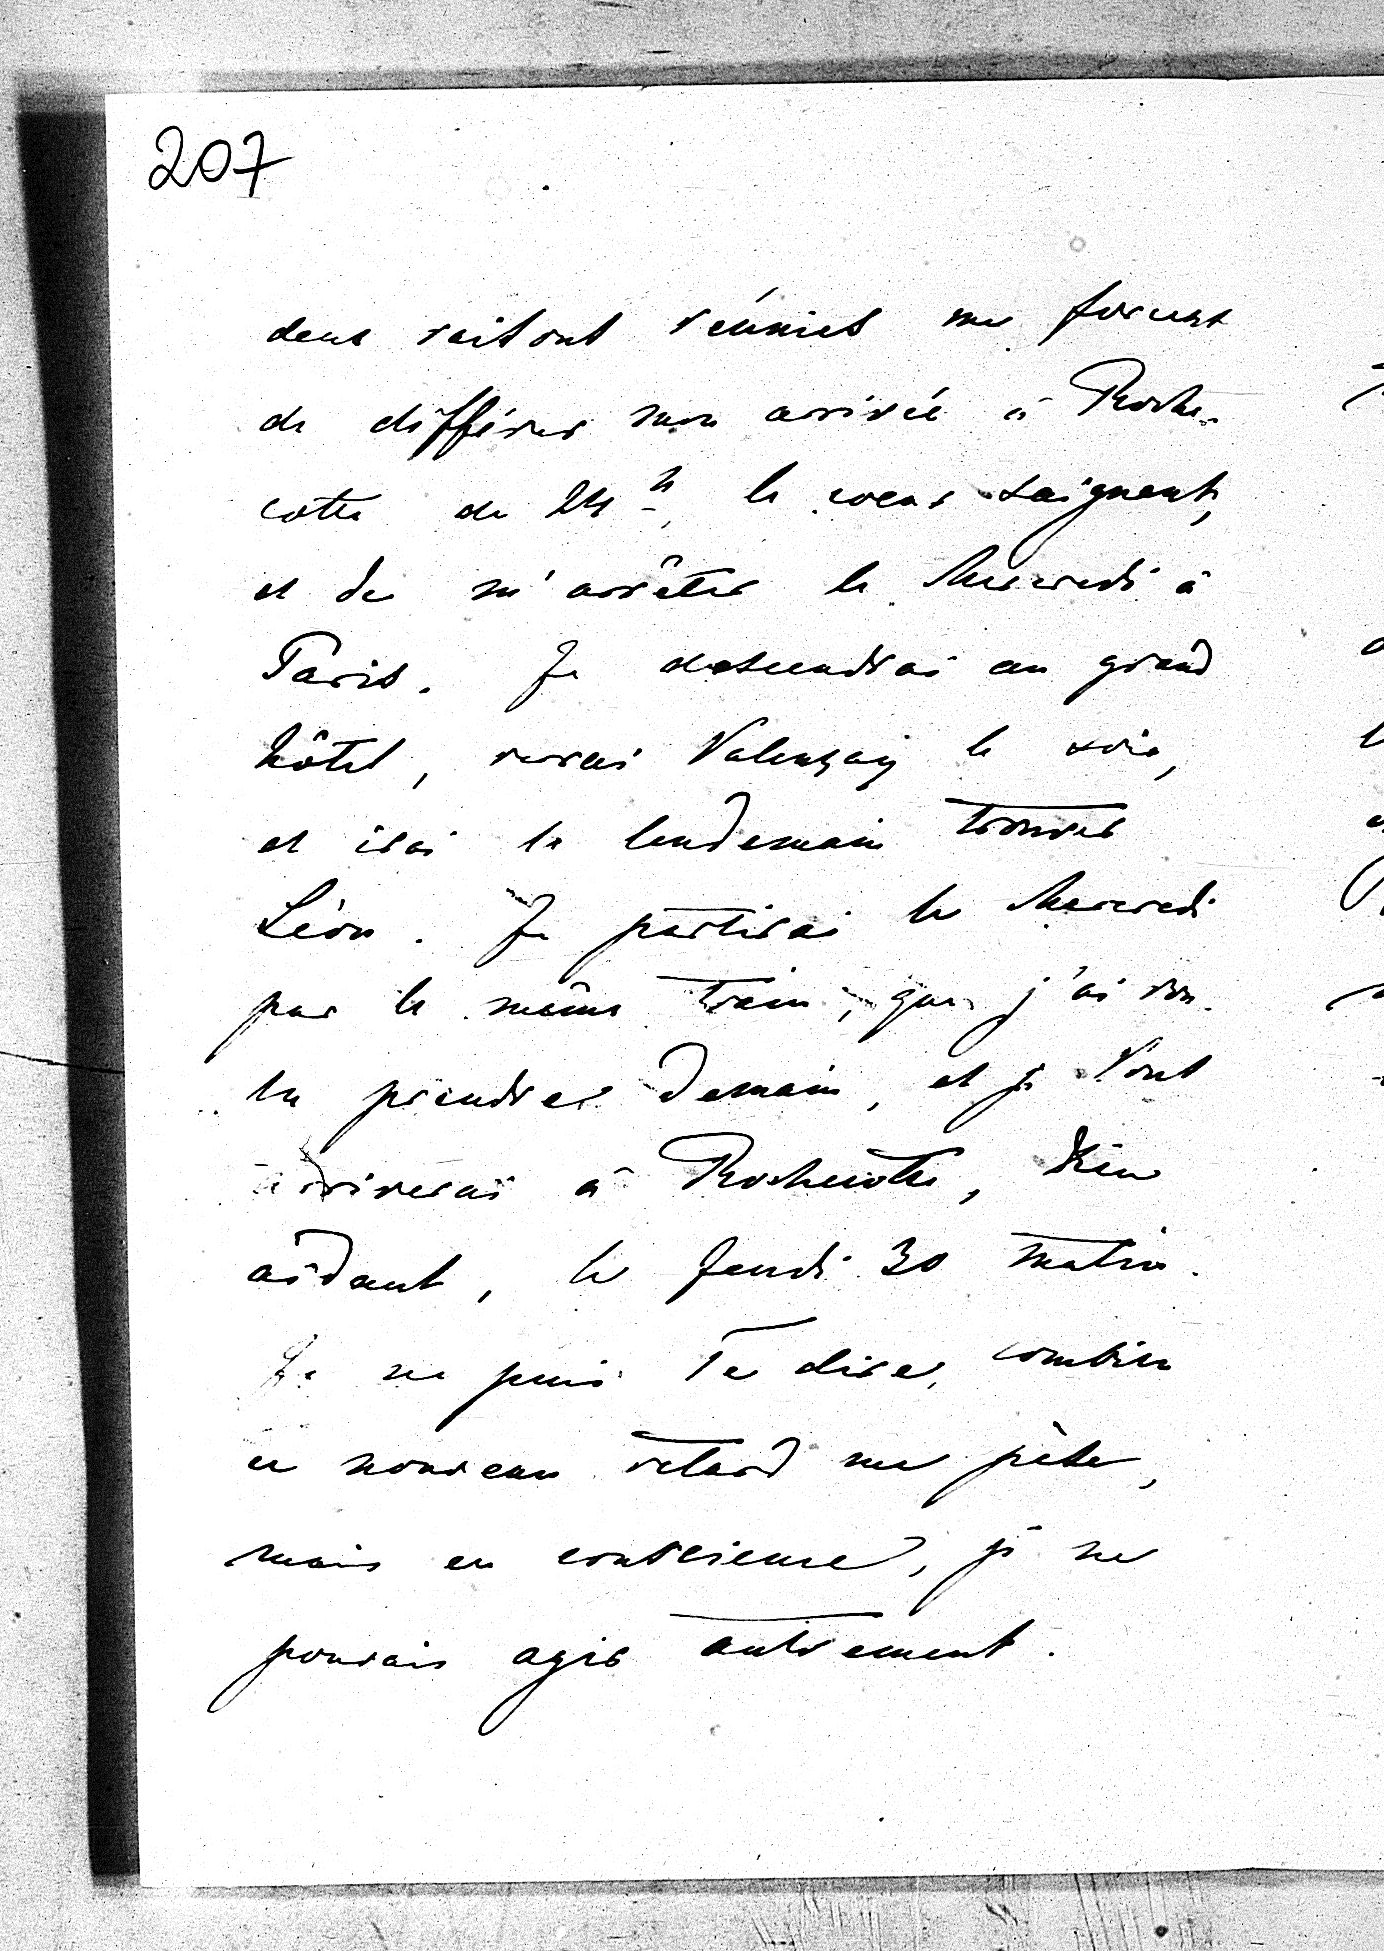 207
deux raisons réunies me forcent
de différer mon arrivée à Roche-
cotte de 24 h, le coeur saignant,
et de m'arrêter le Mercredi à
Paris. Je descendrai au grand
hôtel, verrai Valençay le soir,
et irai le lendemain trouver
Léon. Je partirai le Mercredi
par le même train, que j'ai vou-
lu prendre demain, et je Vous
arriverai à Rochecotte, Dieu
aidant, le Jeudi 30 matin.
Je ne puis Te dire, combien
ce nouveau retard me pèse,
mais en conscience, je ne
pouvais agir autrement.